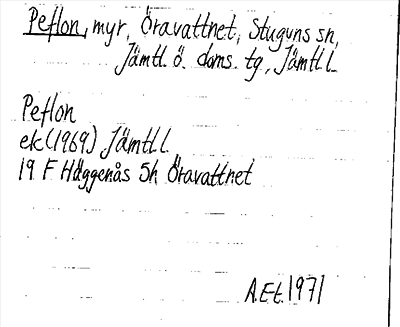 Peflon, myr, Öravattnet, Stuguns sn,
Jämtl. ö. doms. tg, Jämtl. l.
Peflon
ek (1969) Jämtl. l
19 F Häggenås 5h Öravattnet
A.Et. 1971